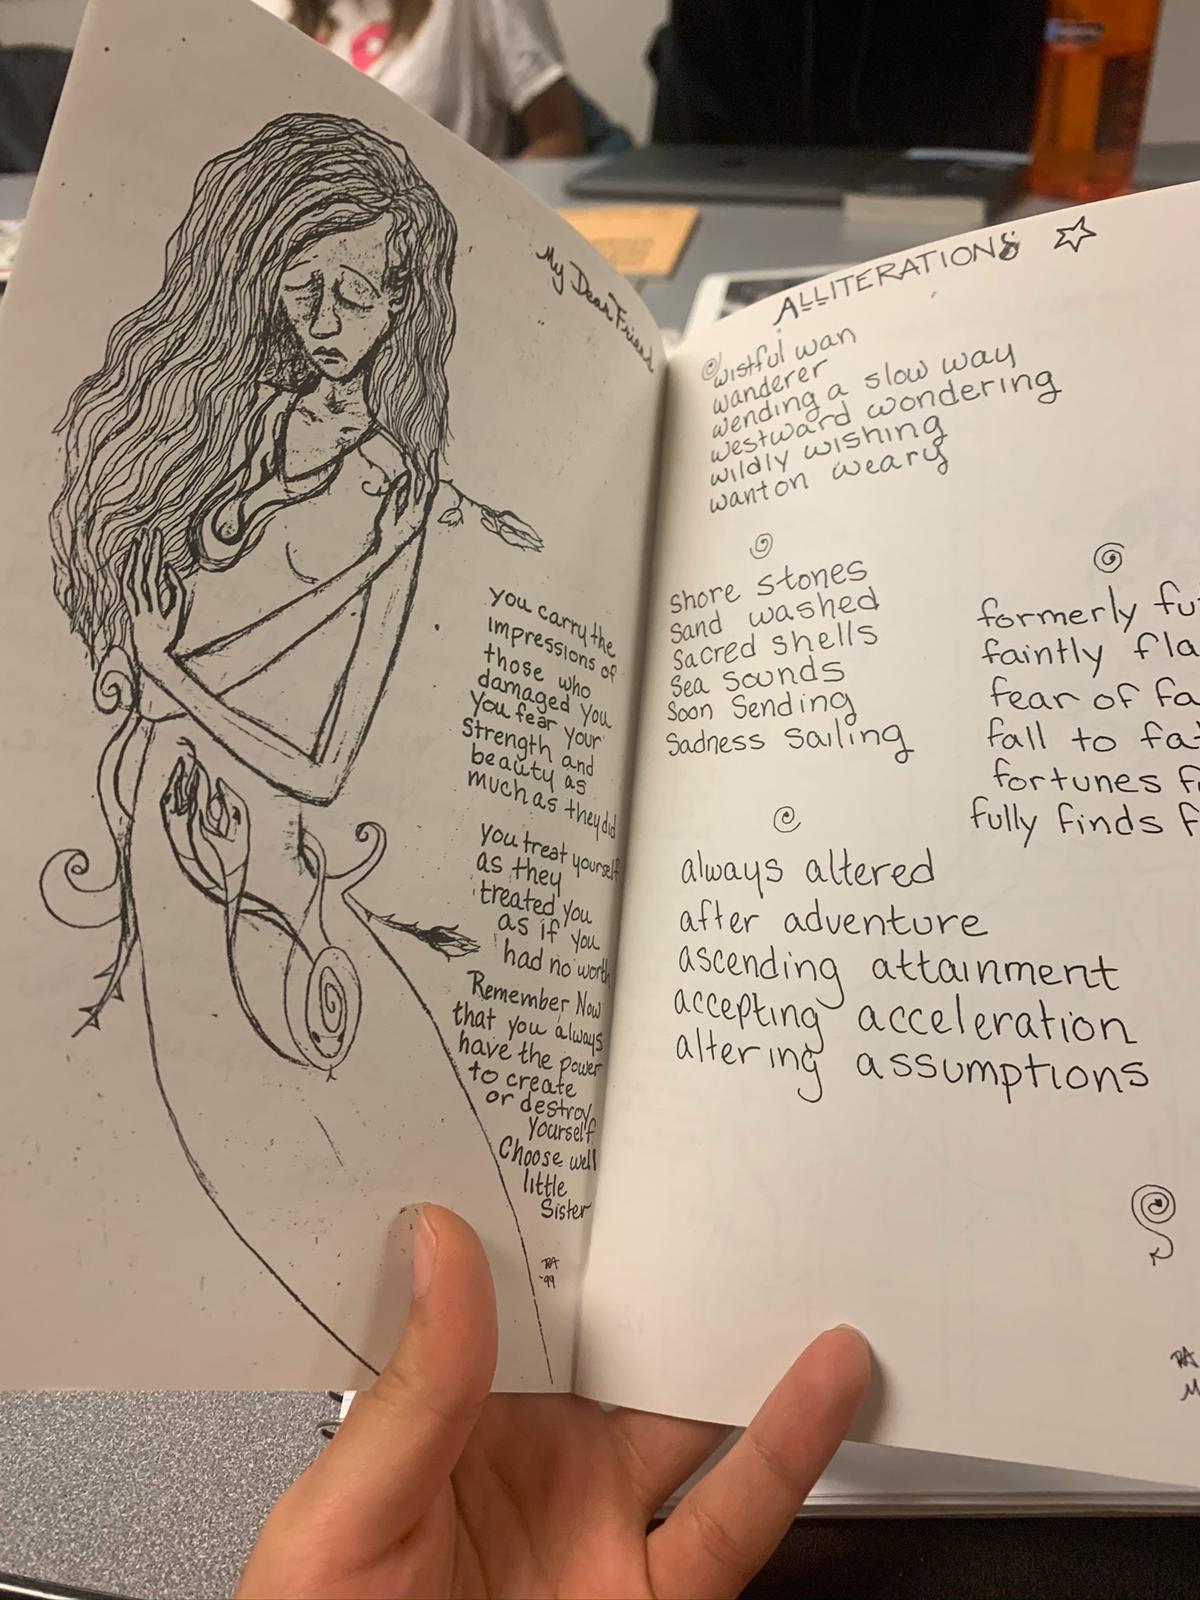 My Dear Friend
you carry the
impressions of
those who
damaged you
You fear your
strength and
beauty as
much as they did
you treat yourself
as they
treated you
as if you
had no worth
Remember Now
that you always
have the power
to create
or destroy
yourself
Choose well
little
Sister
RA
'99
ALLITERATIONS
wistful wan
wanderer
wending a slow way
westward wondering
wildly wishing
wanton weary
shore stones
sand washed
sacred shells
sea sounds
soon sending
sadness sailing
formerly
faintly
fear of
fall to
fortunes
fully finds
always altered
after adventure
ascending attainment
accepting acceleration
altering assumptions
RA